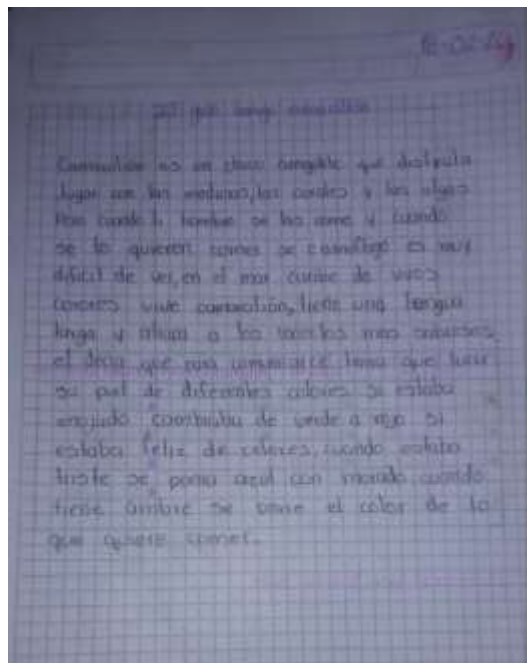 Camaralión es un chico amigable que disfruta
Jugar con las medusas, los corales y las algas
Pero cuando le hambre se los come y cuando
se lo quieren comer se camuflaga es muy
dificil de ver, en el mar caribe de vivos
colores vive camaralión, tiene una lengua
larga y atrapa a los más sabrosos
el decia que para comunicarse tenia que lucir
su piel de diferentes colores si estaba
enojado cambiaba de verde a rojo si
estaba feliz de colores, cuando estaba
triste se ponia azul con morado cuando
tiene ambre se pone el color de lo
que quiere comer.